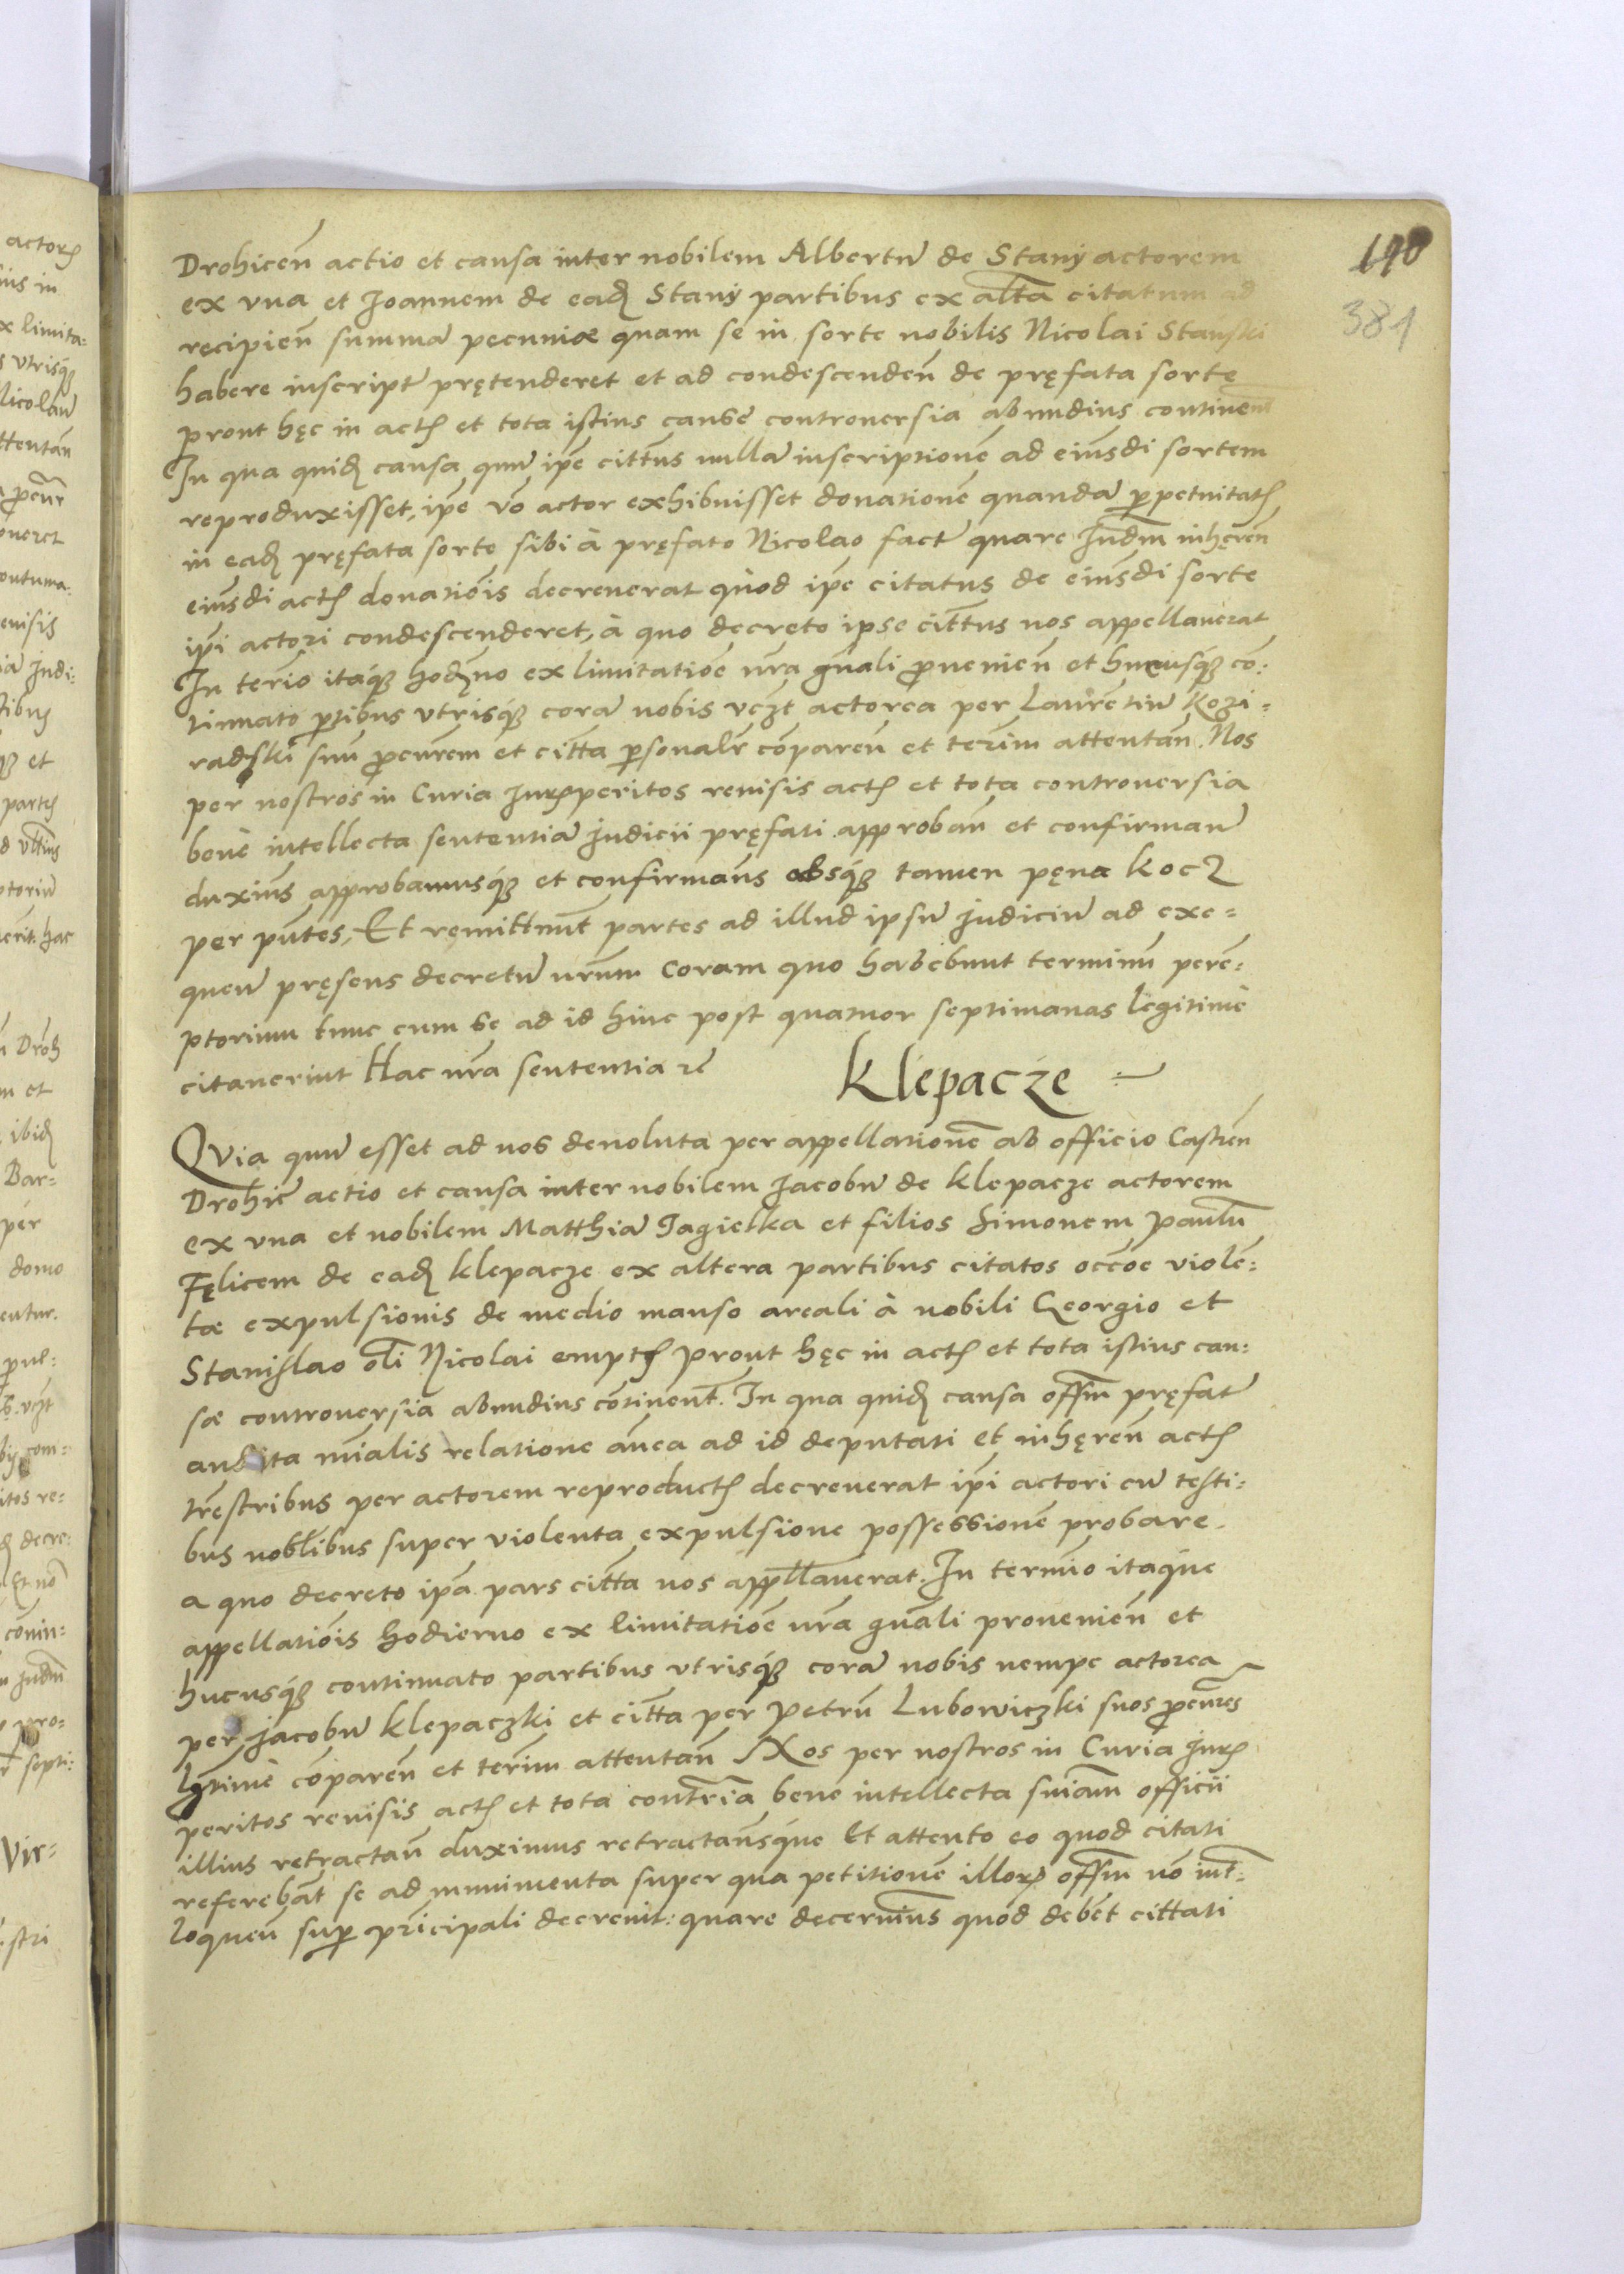 190
381
Drohicen̄ actio et causa inter nobilem Albertū de Stany actorem
ex vna et Joannem de ead̄ Stany partibus ex alt̄a citatum ad
recipien̄ summā pecuniæ quam se in sorte nobilis Nicolai Stanski
habere inscript̄ prętenderet et ad condescenden̄ de pręfata sorte
prout hęc in act̄ et tota istius causę controuersia abundius continent̄
In qua quid̄ causa quū ip̄e citt̄us nullā inscriptionē ad eiusdi sortem
reproduxisset, ip̄e v̄o actor exhibuisset donationē quandā ꝑpetuitat̄
in ead̄ pręfata sorte sibi à pręfato Nicolao fact̄ quare Jud̄m inhęren̄
eiusdi act̄ donatiōis decreuerat quòd ip̄e citatus de eiusdi sorte
ip̄i actori condescenderet, à quo decreto ipse citt̄us nos appellauerat
In teriō itaq́ꝫ hod̄no ex limitatiōe nr̄a gn̄ali ꝓuenien̄ et hucusq́ꝫ cō:
tinuato ꝑtibus vtrisq́ꝫ corā nobis vcꝫt actorea per Laurētiū Kozi:
radzski suū ꝓcur̄em et citt̄a ꝑsonalr̄ cōparen̄ et ter̄im attentan̄. Nos
per nostros in Curia Jurꝭperitos reuisis act̄ et tota controuersia
benè intellecta sententiā judicii pręfati approban̄ et confirman̄
duxim̄s approbamusq́ꝫ et confirmam̄s absq́ꝫ tamen pęna kocz
per pūtes, Et remittūt partes ad illud ipsū judiciū ad exe=
quen̄ pręsens decretū nr̄um coram quo habebunt terminū perē:
ptorium tunc cum se ad id hinc post quatuor septimanas legitimè
citauerint Hac nr̄a sententia ꝛc̄
Klepacze
QVia quū esset ad nos deuoluta per appellationē ab officio Castren̄
Drohic̄ actio et causa inter nobilem Jacobū de Klepacze actorem
ex vna et nobilem Matthiā Jagielka et filios Simonem Paulū
Fęlicem de ead̄ Klepacze ex altera partibus citatos occ̄oe violē:
tæ expulsionis de medio manso areali à nobili Georgio et
Stanislao ol̄i Nicolai empt̄ prout hęc in act̄ et tota istius cau:
sæ controuersia abundius cōtinent̄. In qua quid̄ causa off̄m pręfat̄
audita mīalis relatione an̄ea ad id deputati et inhęren̄ act̄
tr̄estribus per actorem reproduct̄ decreuerat ip̄i actori cū testi:
bus nobl̄ibus super violenta expulsione possessionē probare.
a quo decreto ip̄a pars citt̄a nos app̄llauerat. In termīo itaq́ue
appellatiōis hodierno ex limitatiōe nr̄a gn̄ali prouenien̄ et
hucusq́ꝫ continuato partibus vtrisq́ꝫ corā nobis nempe actorea
per Jacobū Klepaczki et citt̄a per Petrū Lubowiczki suos ꝓcur̄es
lg̅timè cōparen̄ et ter̄im attentan̄ Nos per nostros in Curia Jurꝭ
peritos reuisis act̄ et tota contr̄ia bene intellecta sn̄iam officii
illius retractan̄ duximus retractam̄sq́ue Et attento eo quod citati
referebāt se ad munimenta super qua petitionē illoꝝ off̄m nō int̄:
loquen̄ suꝑ pricipali decreuit: quare decernim̄s quòd debēt cittati